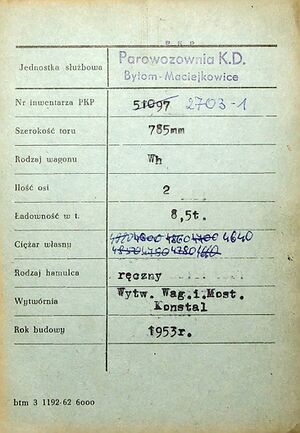 PKP
Jednostka służbowa Parowozownia K.D.
Bytom-Maciejkowice
Nr inwentarza PKP 51097 2703-1
Szerokość toru 785mm
Rodzaj wagonu Wh
Ilość osi 2
Ładowność w t. 8,5t.
Ciężar własny 4600 4700 4640
4780 4660
Rodzaj hamulca ręczny
Wytwórnia Wytw. Wag.i.Most.
Konstal
Rok budowy 1953r.
btm 3 1192-62 6000